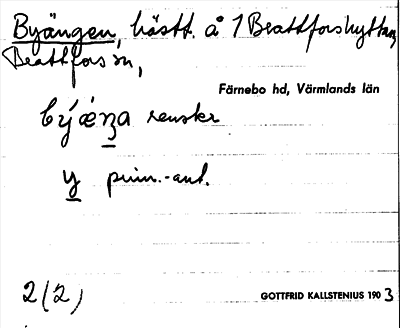 Byängen, hästt. å 1 Brattforshyttan,
Brattfors sn,
Färnebo hd, Värmlands län
renskr
y prim.-ant.
2(2)
GOTTFRID KALLSTENIUS 1903